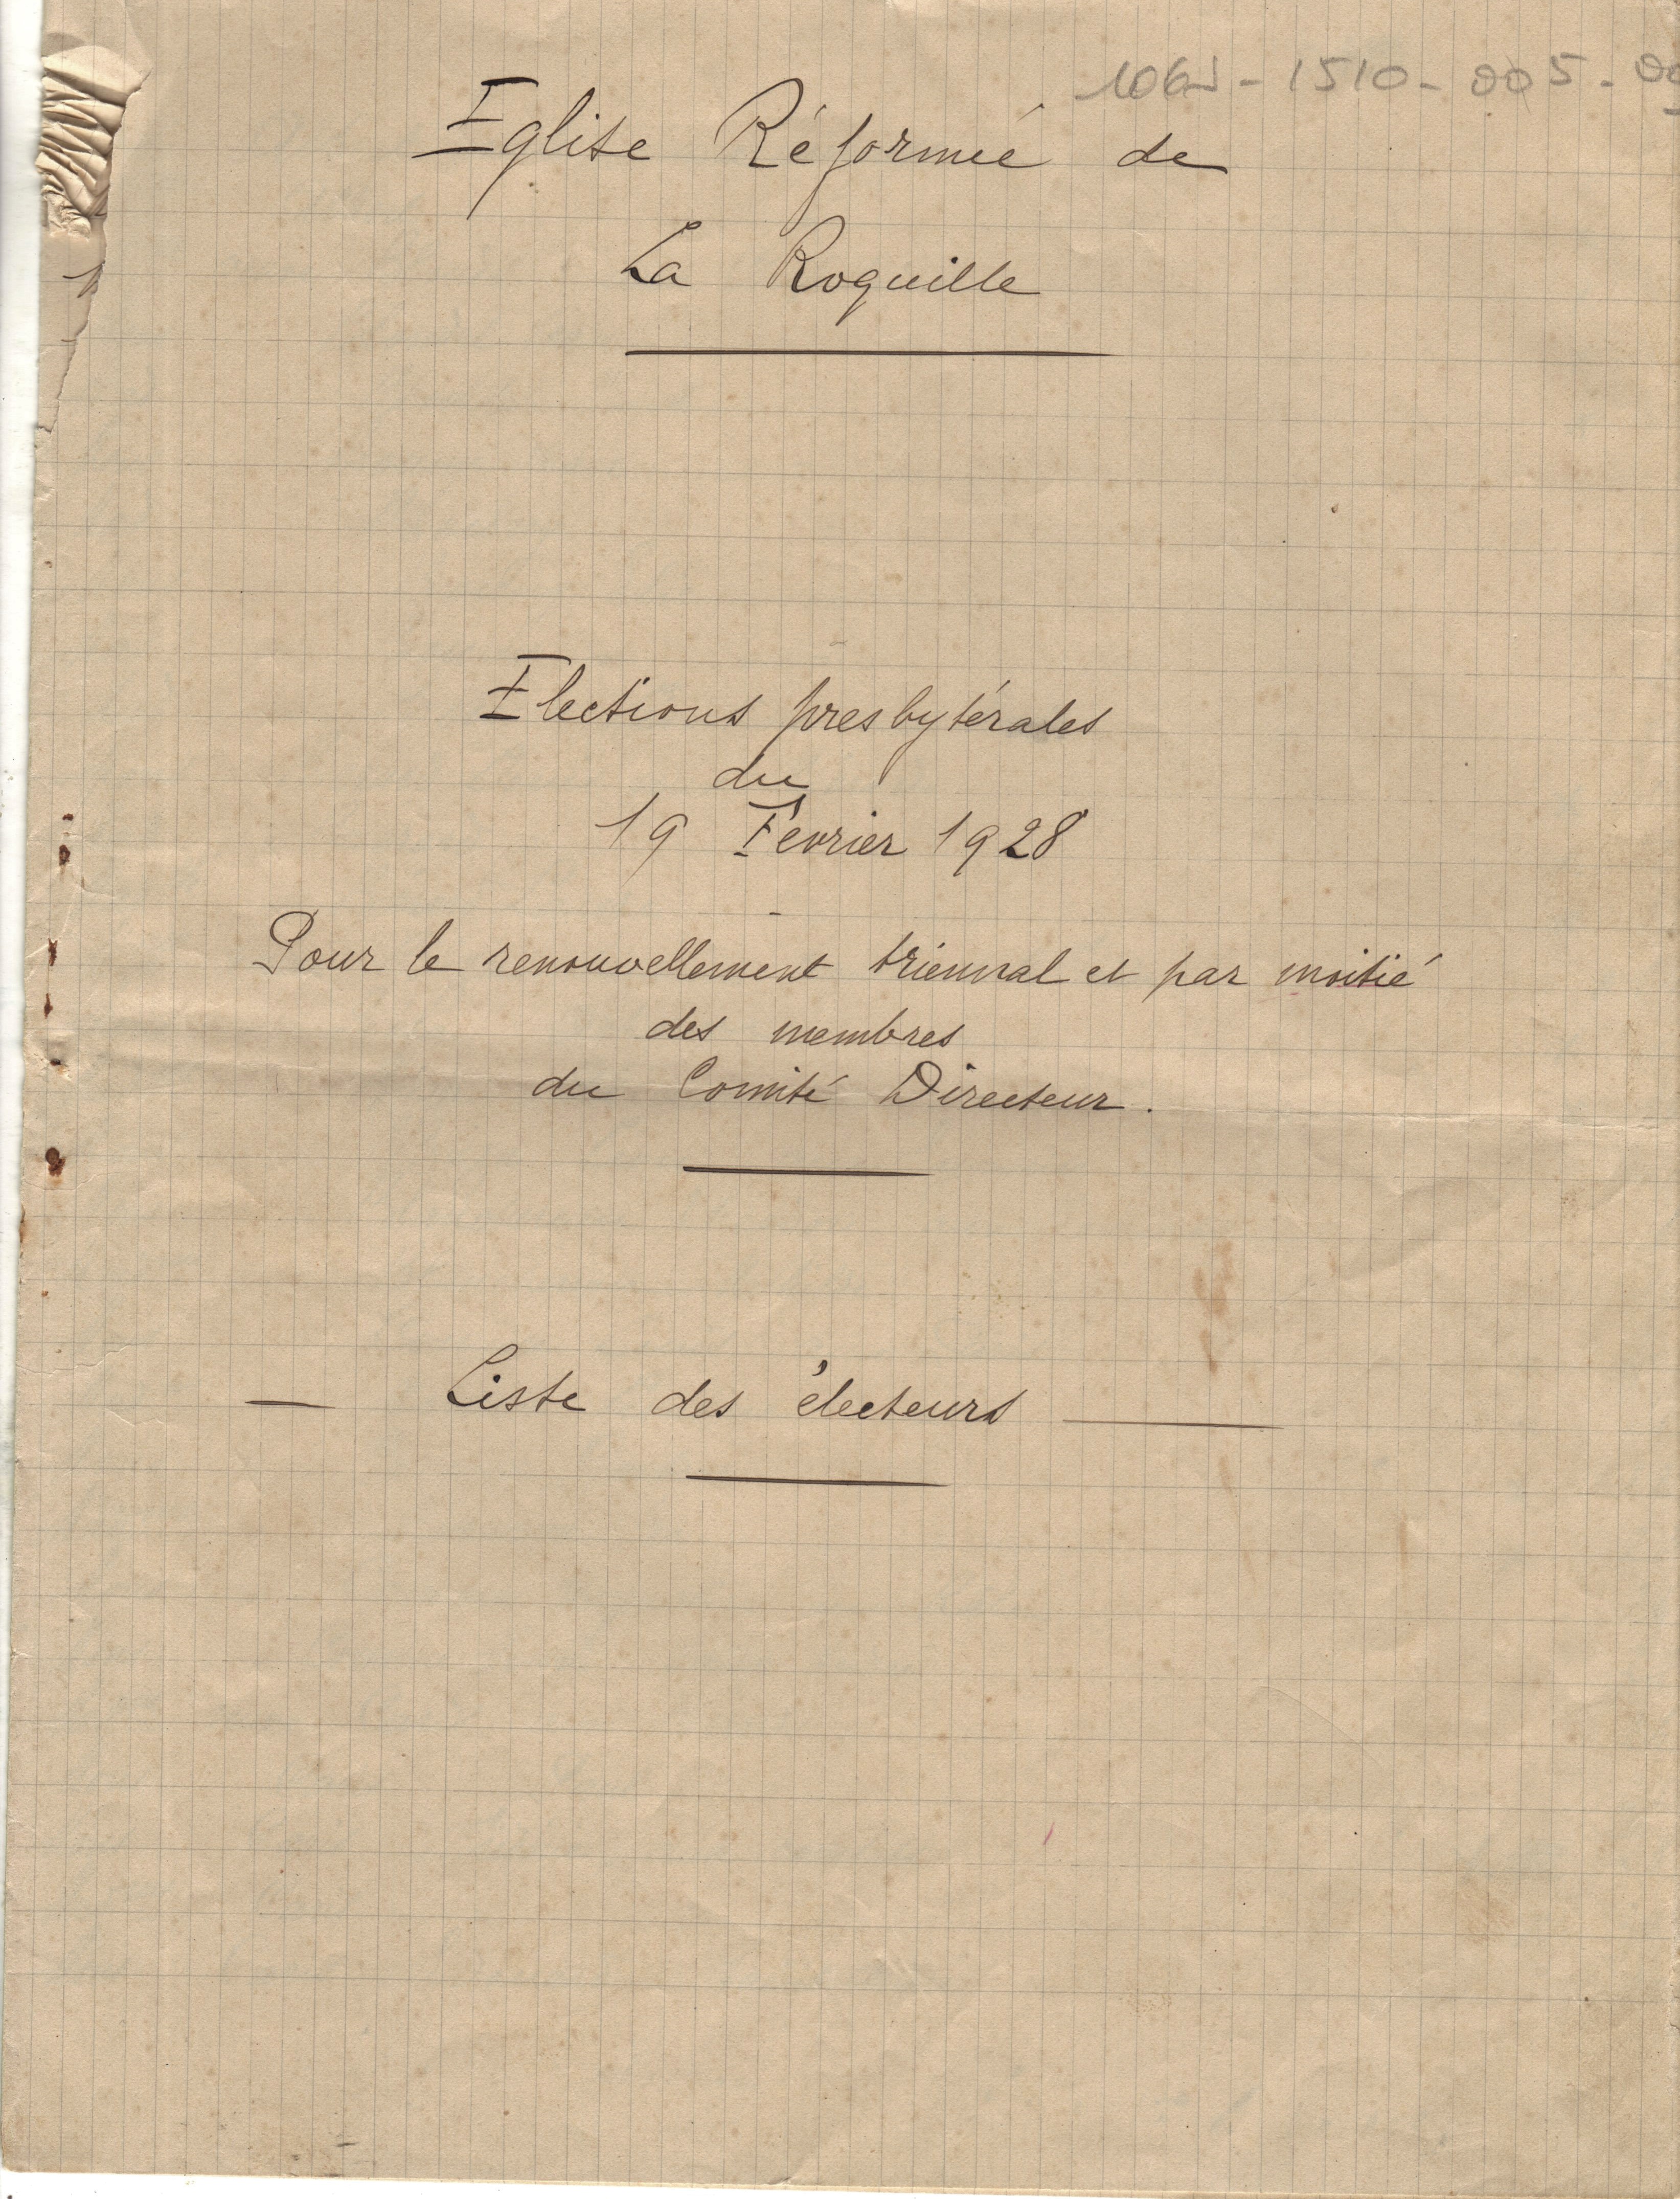 1510-005-
Eglise Réformée de
La Roquille
Elections presbytérales
du
19 Février 1928
Pour le renouvellement triennal et par moitié
des membres
du Comité Directeur.
— Liste des électeurs —